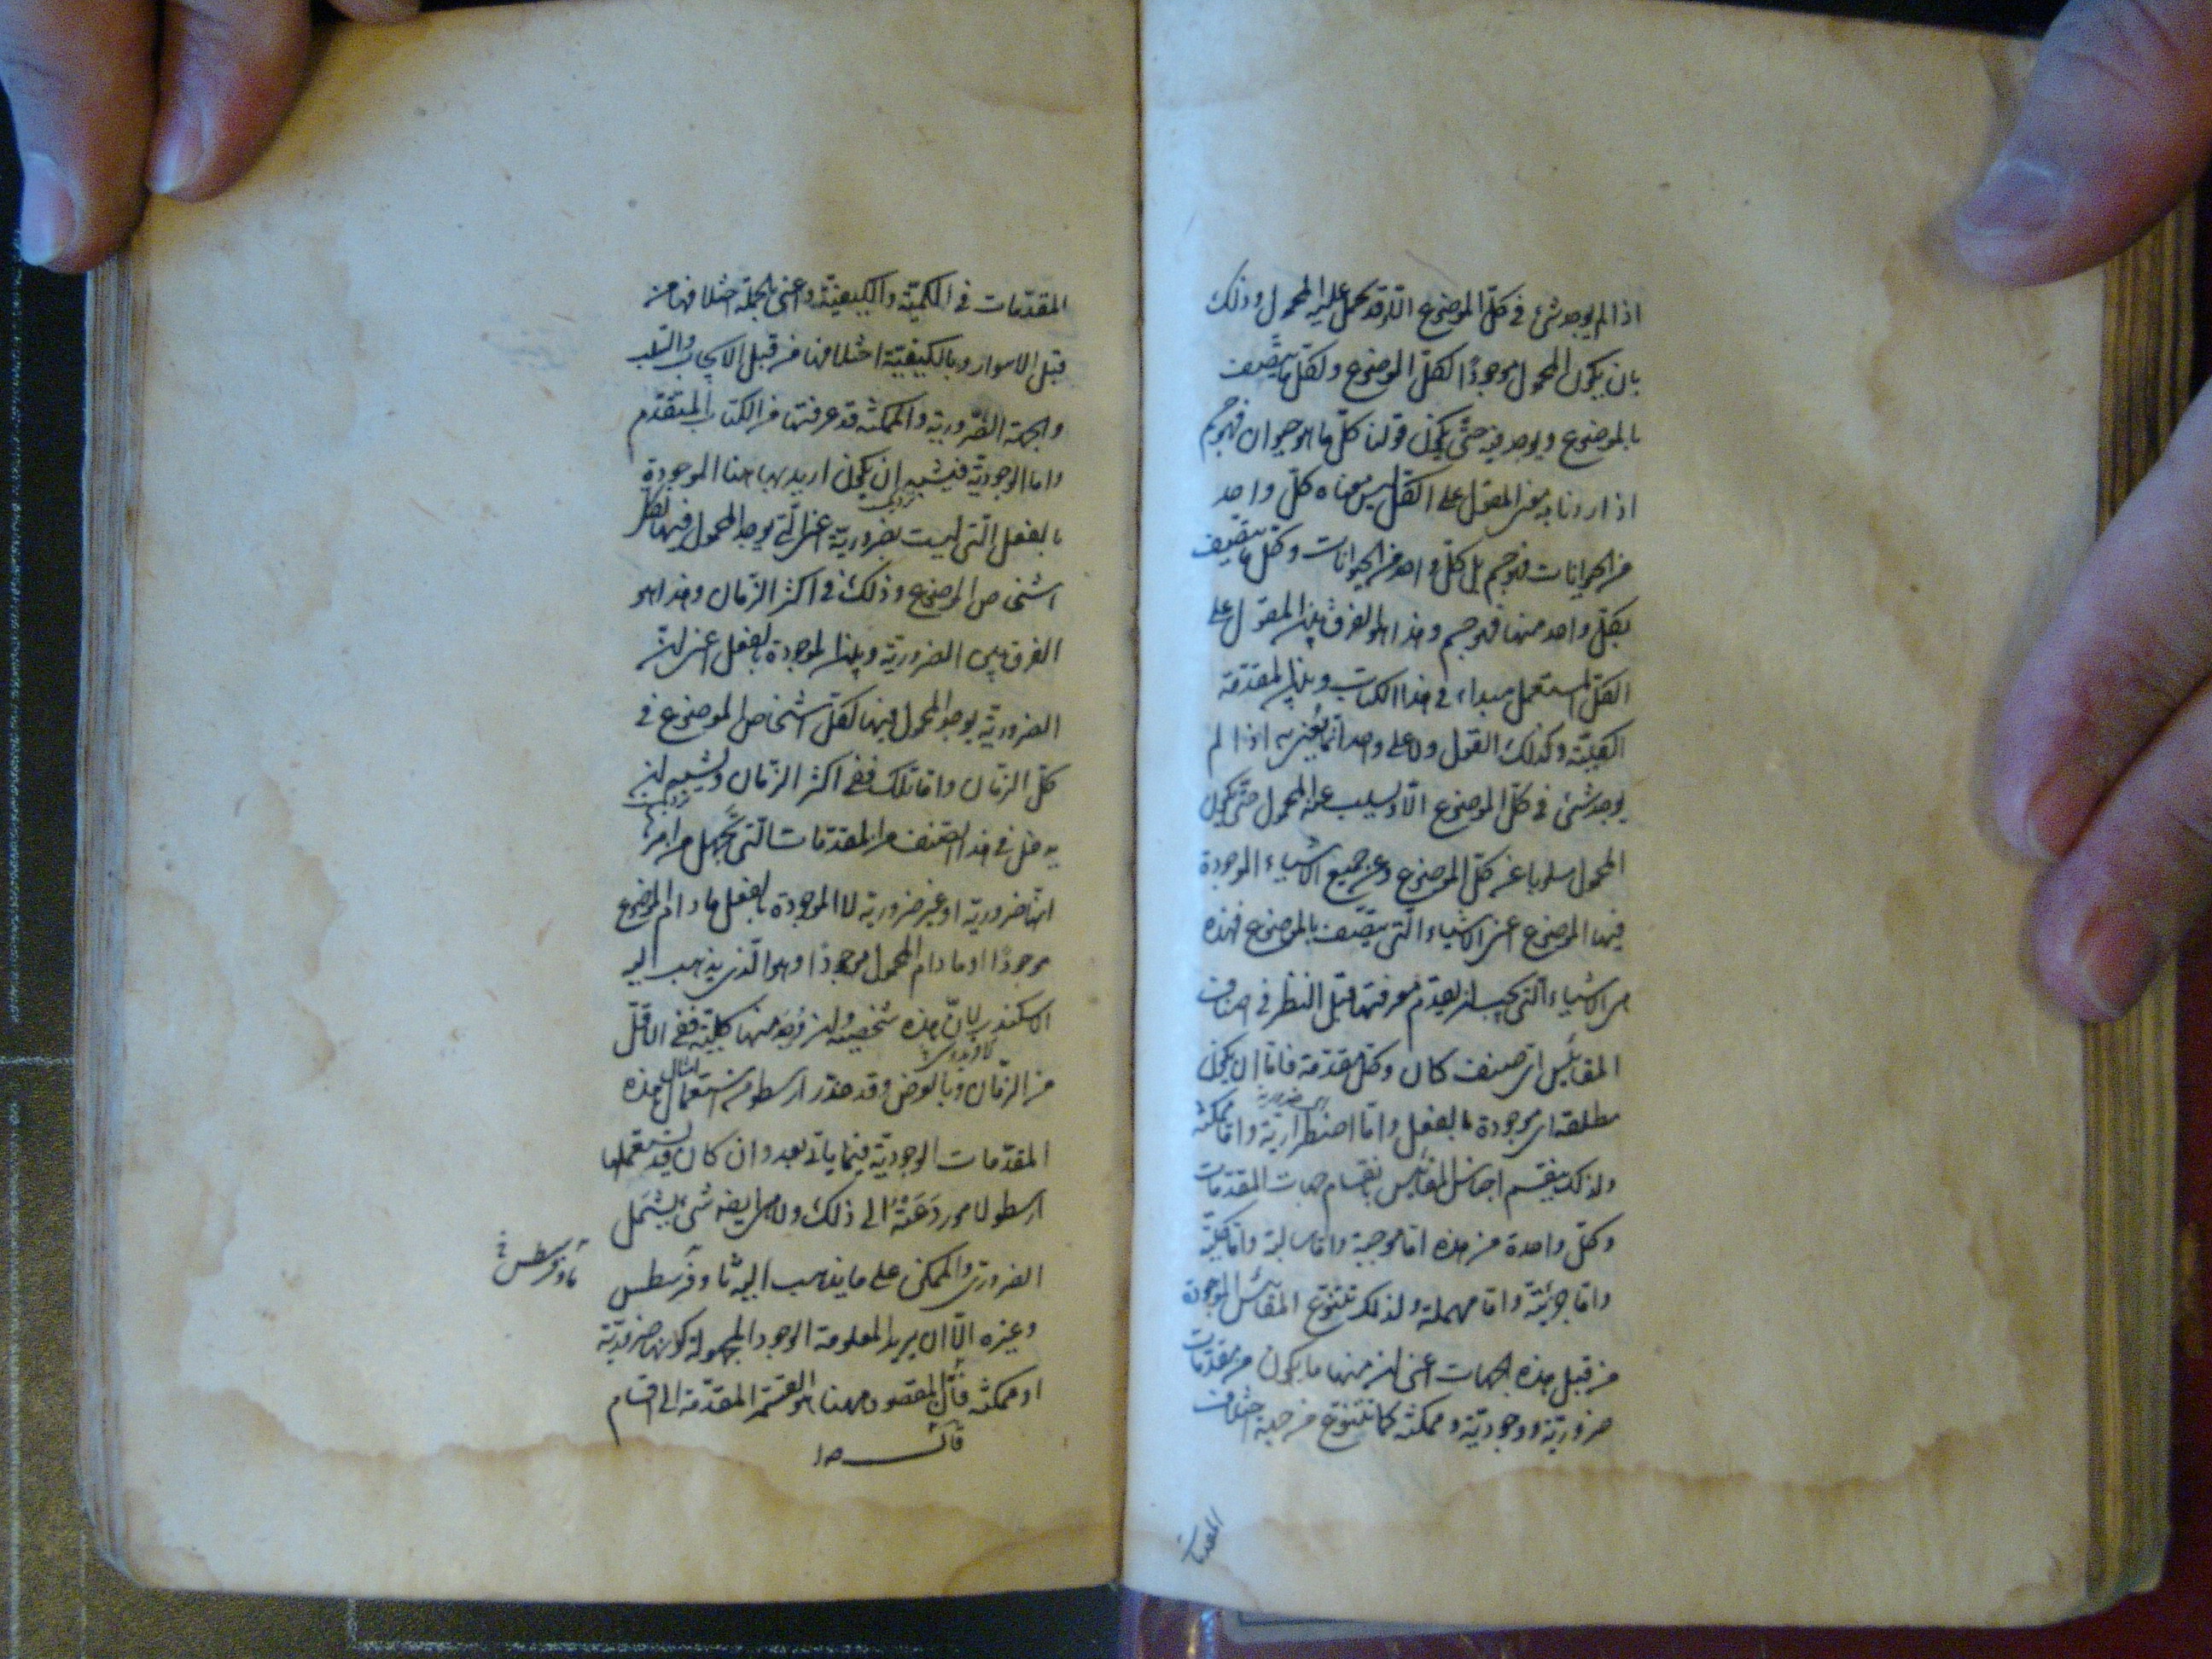 اذا لم يوجد شئ في كلّ الموضوع الّا وقد يحمل عليه المحمول وذلك
بان يكون المحمول موجودًا لكلّ الموضوع ولكلّ ما يتّصف
بالموضوع ويوجد فيه حتّى يكون قولنا كلّ ما هو حيوان فهو جسم
اذا اردنا به معنى المقول على الكلّ ليس معناه كلّ واحد
من الحيوانات فهو جسم بل كلّ واحد من الحيوانات وكلّ ما يتّصف
بكلّ واحد منها فهو جسم وهذا هو الفرق بين المقول على
الكلّ المستعمل مبداء في هذا الكتاب وبين المقدّمة
الكليّة وكذلك القول ولا على واحد انّما يُعنى به اذا لم
يوجد شئ في كلّ الموضوع الّا ويسلب عنه المحمول حتّى يكون
المحمول مسلوبا عن كلّ الموضوع وعن جميع الاشياء الموجودة
فيها الموضوع اعني الاشياء الّتي يتّصف بالموضوع فهذه
هي الاشياء الّتي يجب ان يقدّم معرفتها قبل النظر في اصناف
المقاييس اي صنف كان وكلّ مقدّمة فامّا ان يكون
مطلقة اي موجودة بالفعل وامّا اضطراريّة وامّا ممكنة
اي ضرورية
ولذلك ينقسم اجناس المقاييس بانقسام جهات المقدّمات
وكلّ واحدة من هذه امّا موجبة وامّا سالبة وامّا كليّة
وامّا جزئيّة وامّا مهملة ولذلك تتنوّع المقائيس الموجودة
من قبل هذه الجهات اعني ان منها ما يكون من مقدّمات
ضروريّة ووجوديّة وممكنة كما تتنوّع من جهة اختلاف
المقدمات
المقدّمات في الكميّة والكيفيّة واعني بالجملة اختلافها من
قبل الاسوار وبالكيفيّة اختلافها من قبل الايجاب والسّلب
والجهة الضّروريّة والممكنة قد عرفتها من الكتاب المتقدّم
وامّا الوجوديّة فيشبه ان يكون اريد بها هاهنا الموجودة
بالفعل الّتي ليست بضروريّة اعني الّتي يوجد المحمول فيها لكلّ
اشخاص الموضوع وذلك في اكثر الزّمان وهذا هو
الفرق بين الضروريّة وبين الموجودة بالفعل اعني انّ
الضروريّة يوجد المحمول فيها لكلّ اشخاص الموضوع في
كلّ الزمان وامّا تلك ففي اكثر الزّمان ويشبه ان
يدخل في هذا الصّنف من المقدّمات الّتي يُجهل من امرها
انّها ضروريّة او غير ضروريّة لا الموجودة بالفعل ما دام الموضوع
موجودًا او ما دام المحمول موجودًا وهو الّذي يذهب اليه
الاسكندر لانّ هذه شخصيّة وان وُجد منها كليّة ففي الاقلّ
من الزمان وبالعرض وقد حذّر ارسطو من استعمال هذه
المقدّمات الوجوديّة فيما ياتي بعد وان كان قد يستعملها
ارسطو لامور دَعَتْهُ الى ذلك ولا هي ايضا شئ يشتمل
الضروري والممكن على ما يذهب اليه ثاوفرسطس
ثاوفرسطس خ
وغيره الّا ان يريد المعلومة الوجود المجهولة كونها ضروريّة
او ممكنة فانّ المقصود ههنا هو القسمة المقدّمة الى اقسام